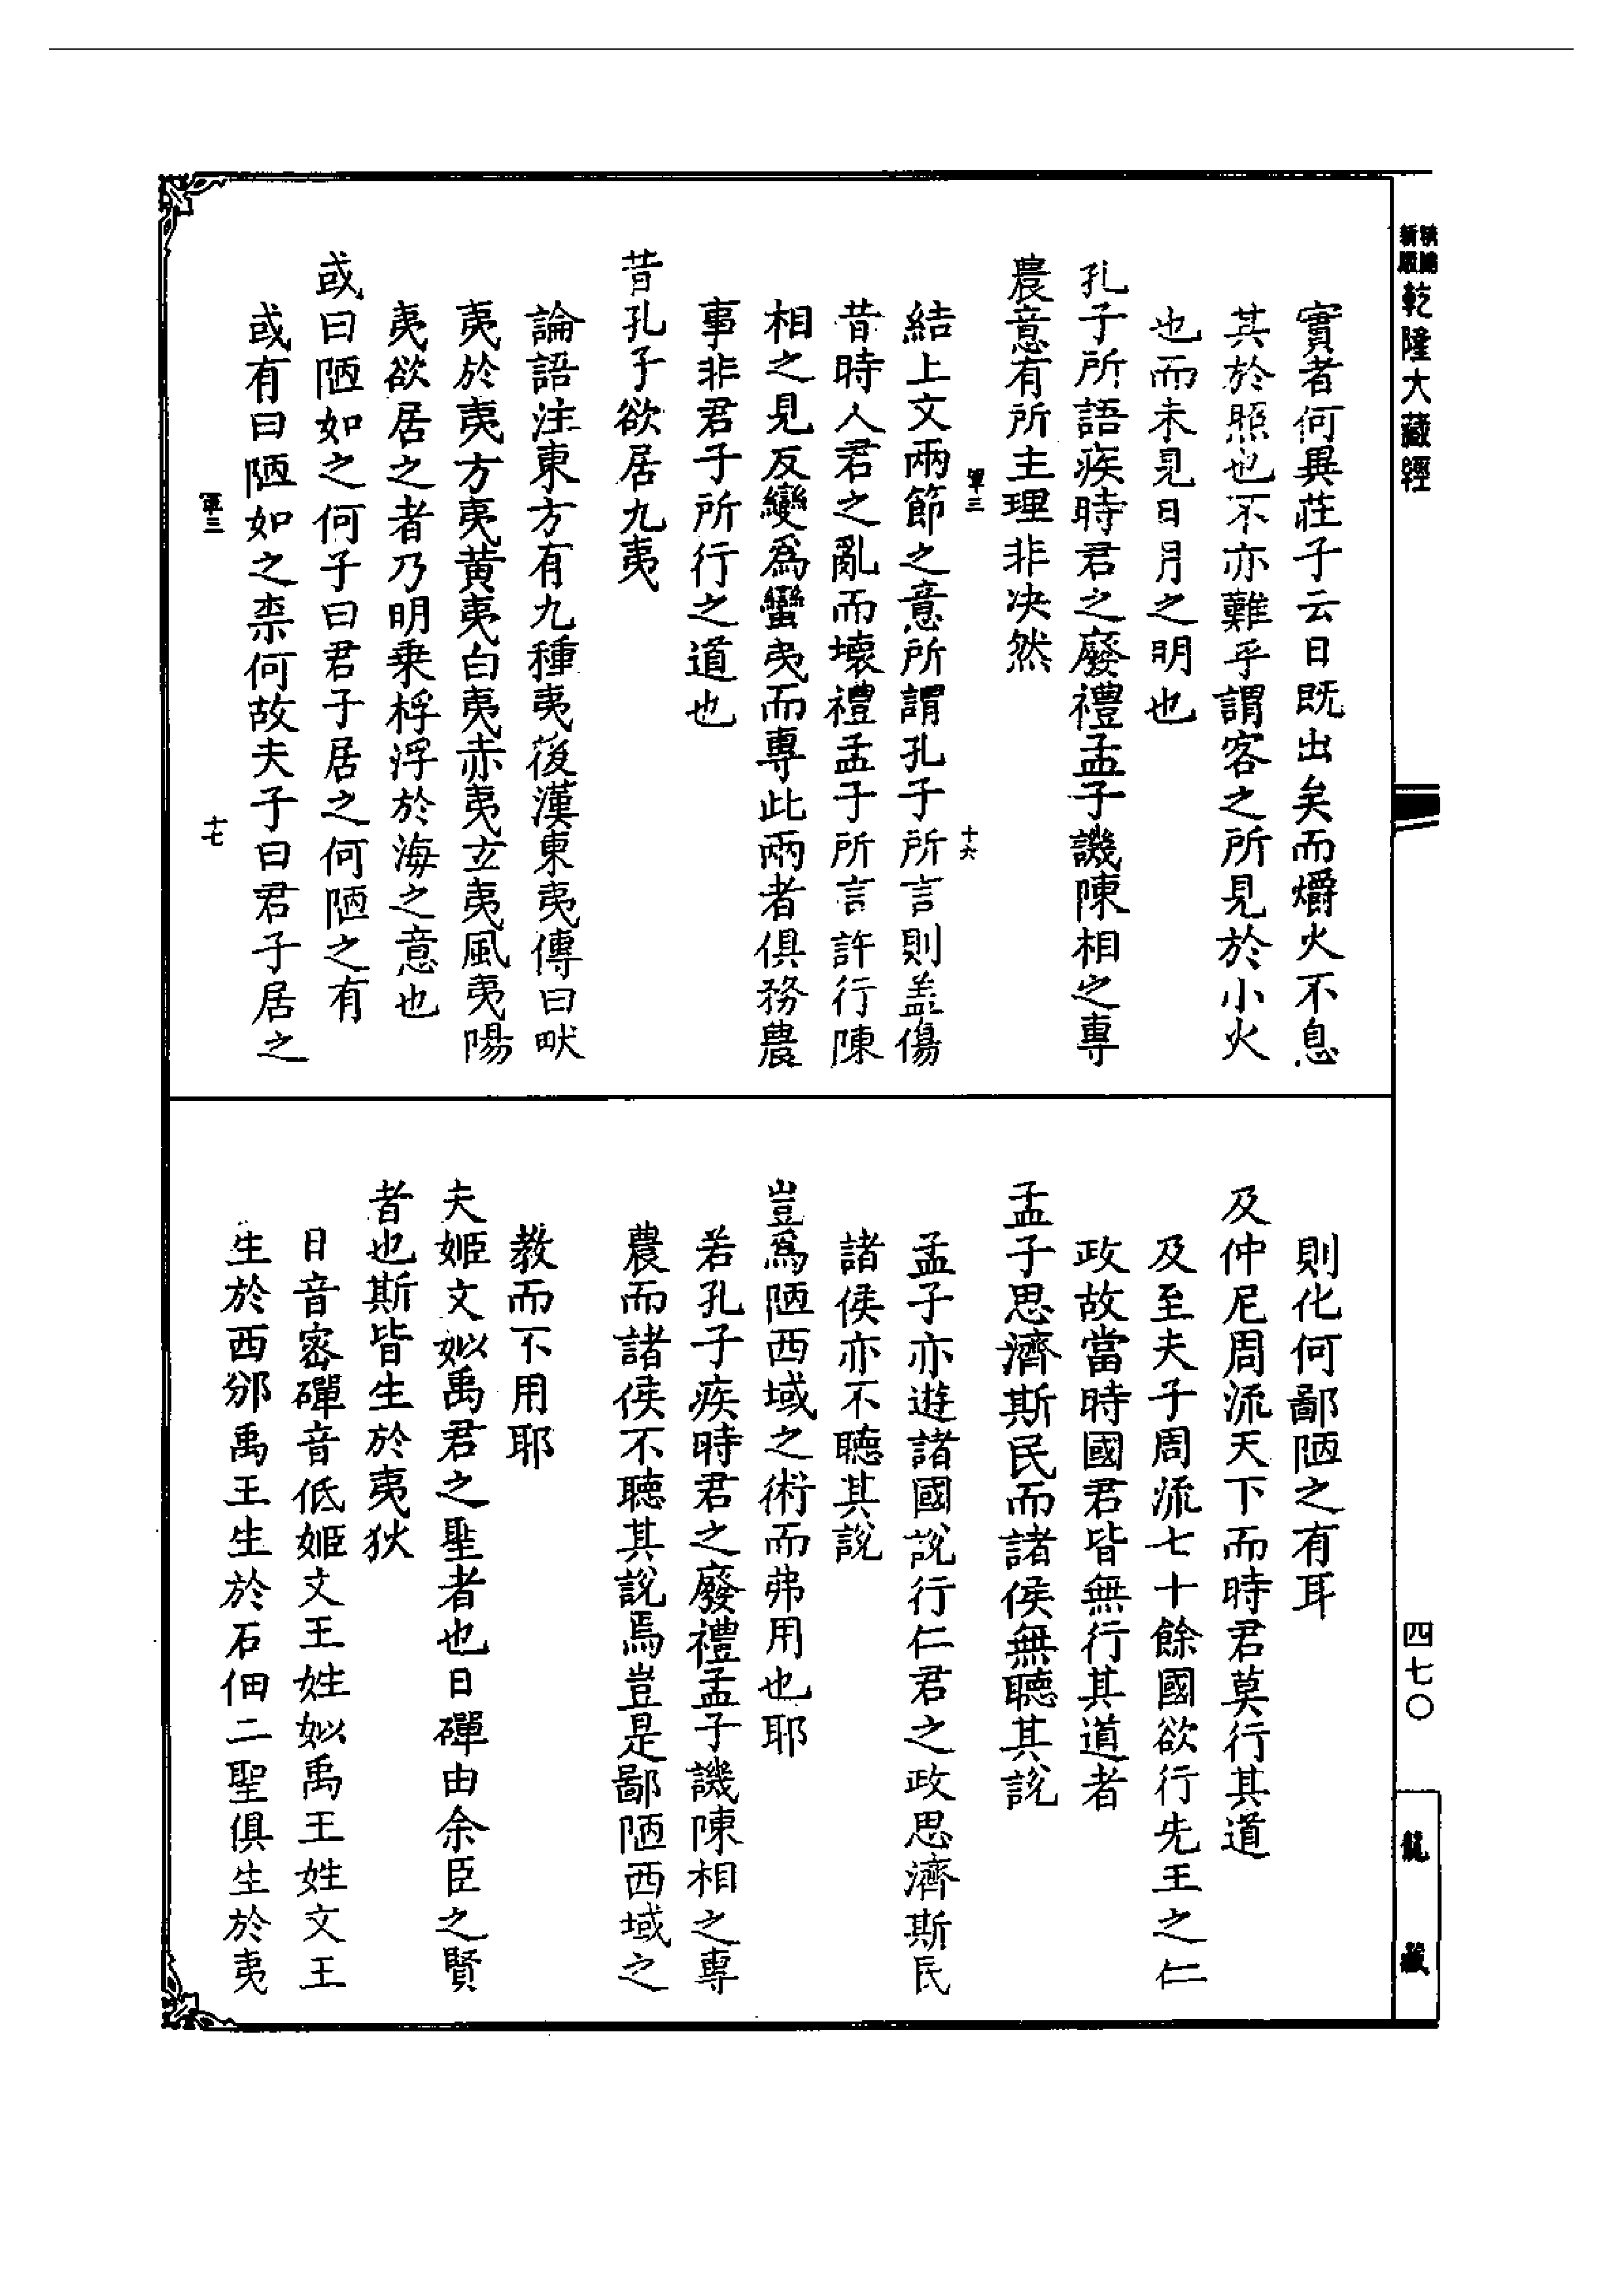 新編
縮版
乾隆大藏經
實者何異莊子云日既出矣而爝火不息
其於照也不亦難乎謂客之所見於小火
也而未見日月之明也
孔子所語疾時君之廢禮孟子譏陳相之專
農意有所主理非決然
軍三
十六
結上文兩節之意所謂孔子所言則盖傷
昔時人君之亂而壞禮孟子所言許行陳
相之見反變爲蠻夷而專此兩者俱務農
事非君子所行之道也
昔孔子欲居九夷
論語注東方有九種夷後漢東夷傳曰畎
夷於夷方夷黄夷白夷赤夷玄夷風夷陽
夷欲居之者乃明乗桴浮於海之意也
或曰陋如之何子曰君子居之何陋之有
或有曰陋如之柰何故夫子曰君子居之
軍三
十七
則化何鄙陋之有耳
及仲尼周流天下而時君莫行其道
及至夫子周流七十餘國欲行先王之仁
政故當時國君皆無行其道者
孟子思濟斯民而諸侯無聽其說
孟子亦遊諸國說行仁君之政思濟斯民
諸侯亦不聽其說
豈爲陋西域之術而弗用也耶
若孔子疾時君之廢禮孟子譏陳相之專
農而諸侯不聽其說焉豈是鄙陋西域之
教而不用耶
夫姬文姒禹君之聖者也日磾由余臣之賢
者也斯皆生於夷狄
日音密磾音低姬文王姓姒禹王姓文王
生於西邠禹王生於石佃二聖俱生於夷
四七〇
龍藏